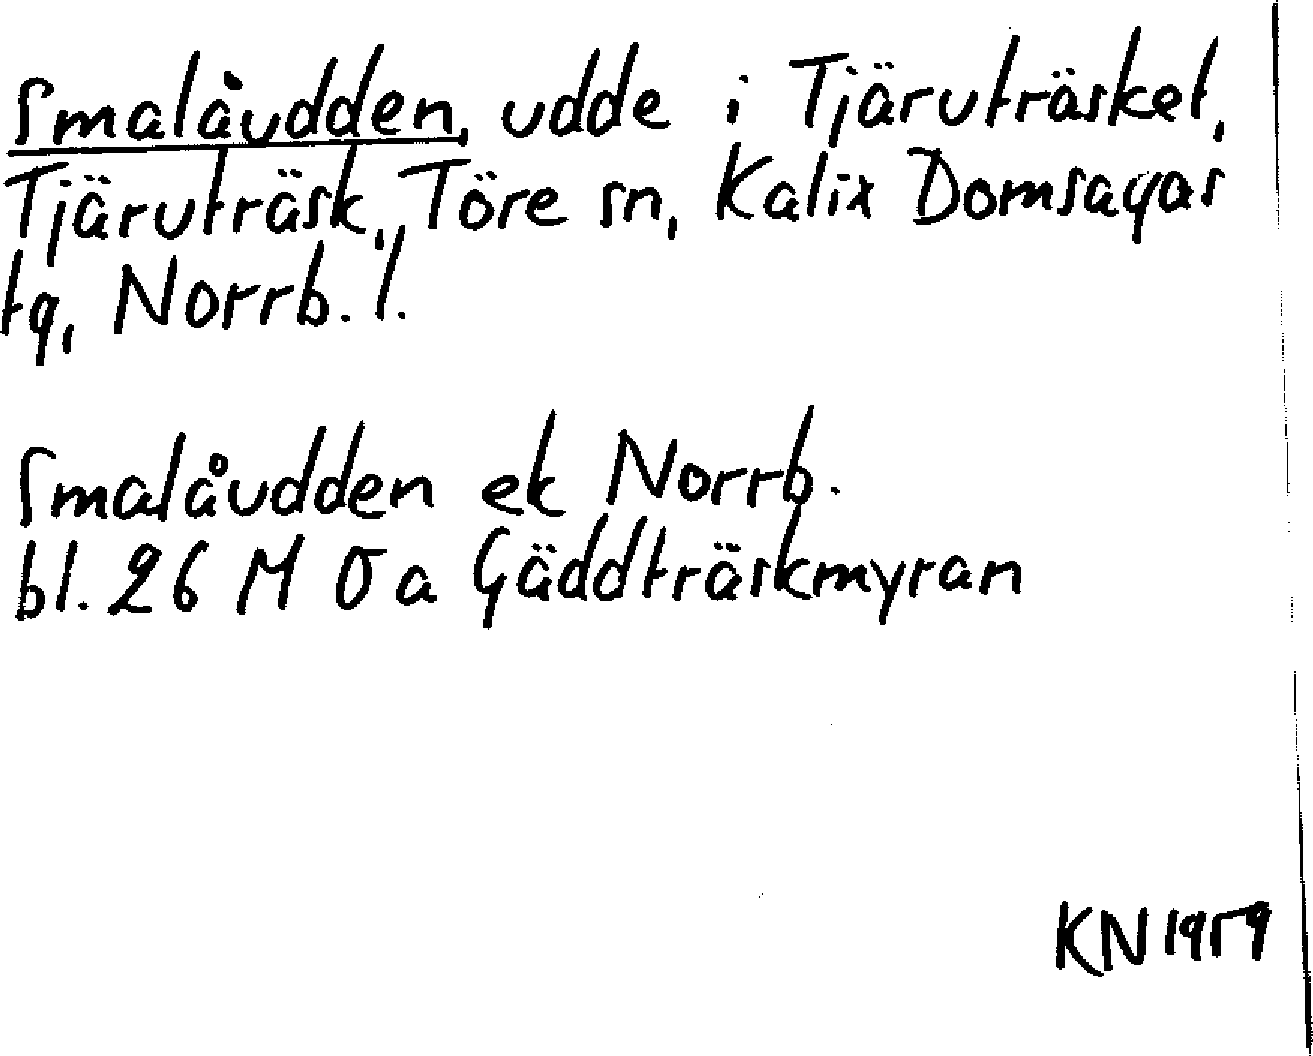 Smalåudden, udde i Tjäruträsket,
Tjäruträsk, Töre sn, Kalix Domsagas
tg, Norrb. l.
Smalåudden ek Norrb.
bl. 26 M Ö a Gäddträskmyran
KN 1959